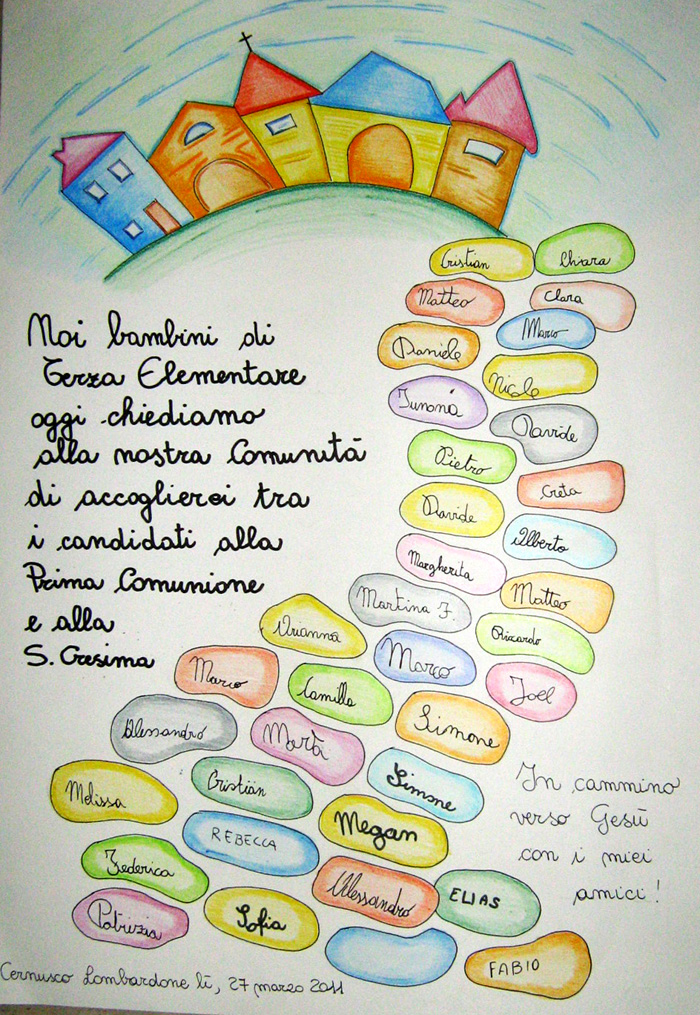 Noi bambini di
Terza Elementare
oggi chiediamo
alla nostra Comunità
di accoglierci tra
i candidati alla
Prima Comunione
e alla
S. Cresima
Cristian
Chiara
Matteo
Clara
Marco
Daniele
Nicole
Davide
Pietro
Greta
Davide
Alberto
Margherita
Matteo
Martina F.
Riccardo
Arianna
Marco
Joel
Marco
Camilla
Simone
Alessandro
Marta
Simone
Cristian
Melissa
Megan
REBECCA
Federica
Alessandro
ELIAS
Patrizia
Sofia
FABIO
In cammino
verso Gesù
con i miei
amici!
Cernusco Lombardone lì, 27 marzo 2011